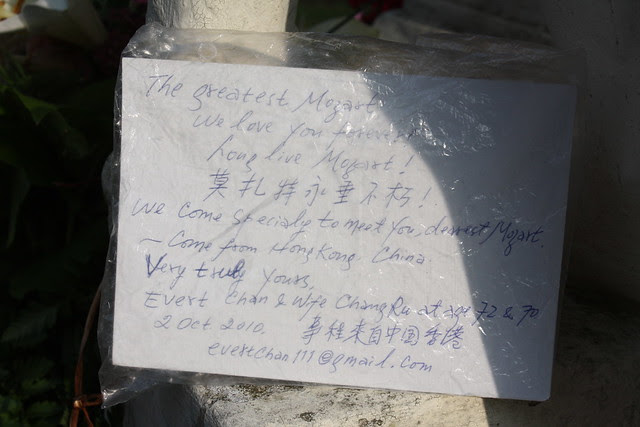 The greatest Mozart
We love you forever!
Long live Mozart!
莫扎特永垂不朽!
We come specialy to meet you, dearest Mozart.
— Come from HongKong China.
Very truly yours,
Evert Chan & Wife Chang Ru at age 72 & 70
2 Oct 2010. 專程来自中国香港
evertchan111@gmail.com